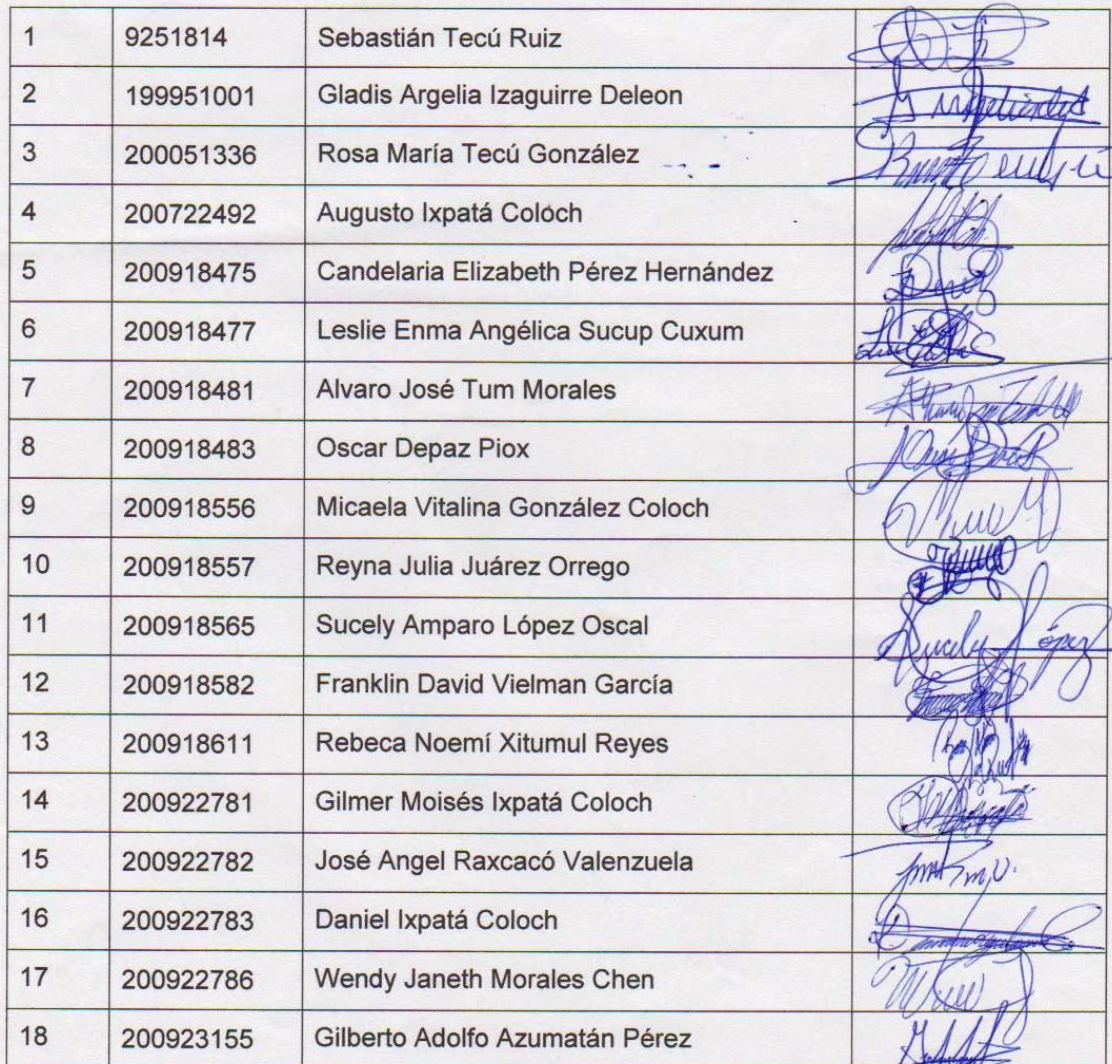 1 9251814 Sebastián Tecú Ruiz
2 199951001 Gladis Argelia Izaguirre Deleon
3 200051336 Rosa María Tecú González
4 200722492 Augusto Ixpatá Colóch
5 200918475 Candelaria Elizabeth Pérez Hernández
6 200918477 Leslie Enma Angélica Sucup Cuxum
7 200918481 Alvaro José Tum Morales
8 200918483 Oscar Depaz Piox
9 200918556 Micaela Vitalina González Coloch
10 200918557 Reyna Julia Juárez Orrego
11 200918565 Sucely Amparo López Oscal Sucely López
12 200918582 Franklin David Vielman García
13 200918611 Rebeca Noemí Xitumul Reyes
14 200922781 Gilmer Moisés Ixpatá Coloch
15 200922782 José Angel Raxcacó Valenzuela
16 200922783 Daniel Ixpatá Coloch
17 200922786 Wendy Janeth Morales Chen
18 200923155 Gilberto Adolfo Azumatán Pérez